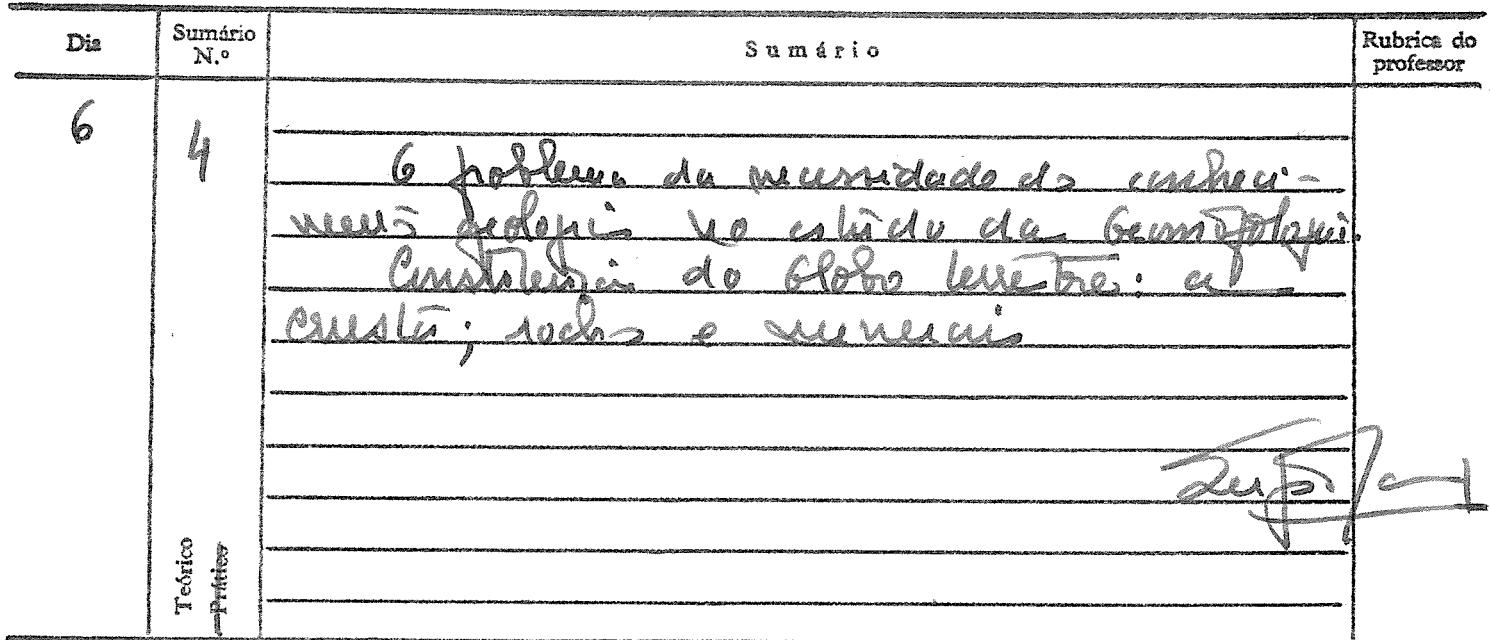 Dia
Sumário N.º
Sumário
Rubrica do professor
6
4
O problema da necessidade do conheci-
mento geologico no estudo da Geomorfologia.
Constituição do Globo terrestre: a
crusta; rochas e minerais
Teórico
Prático